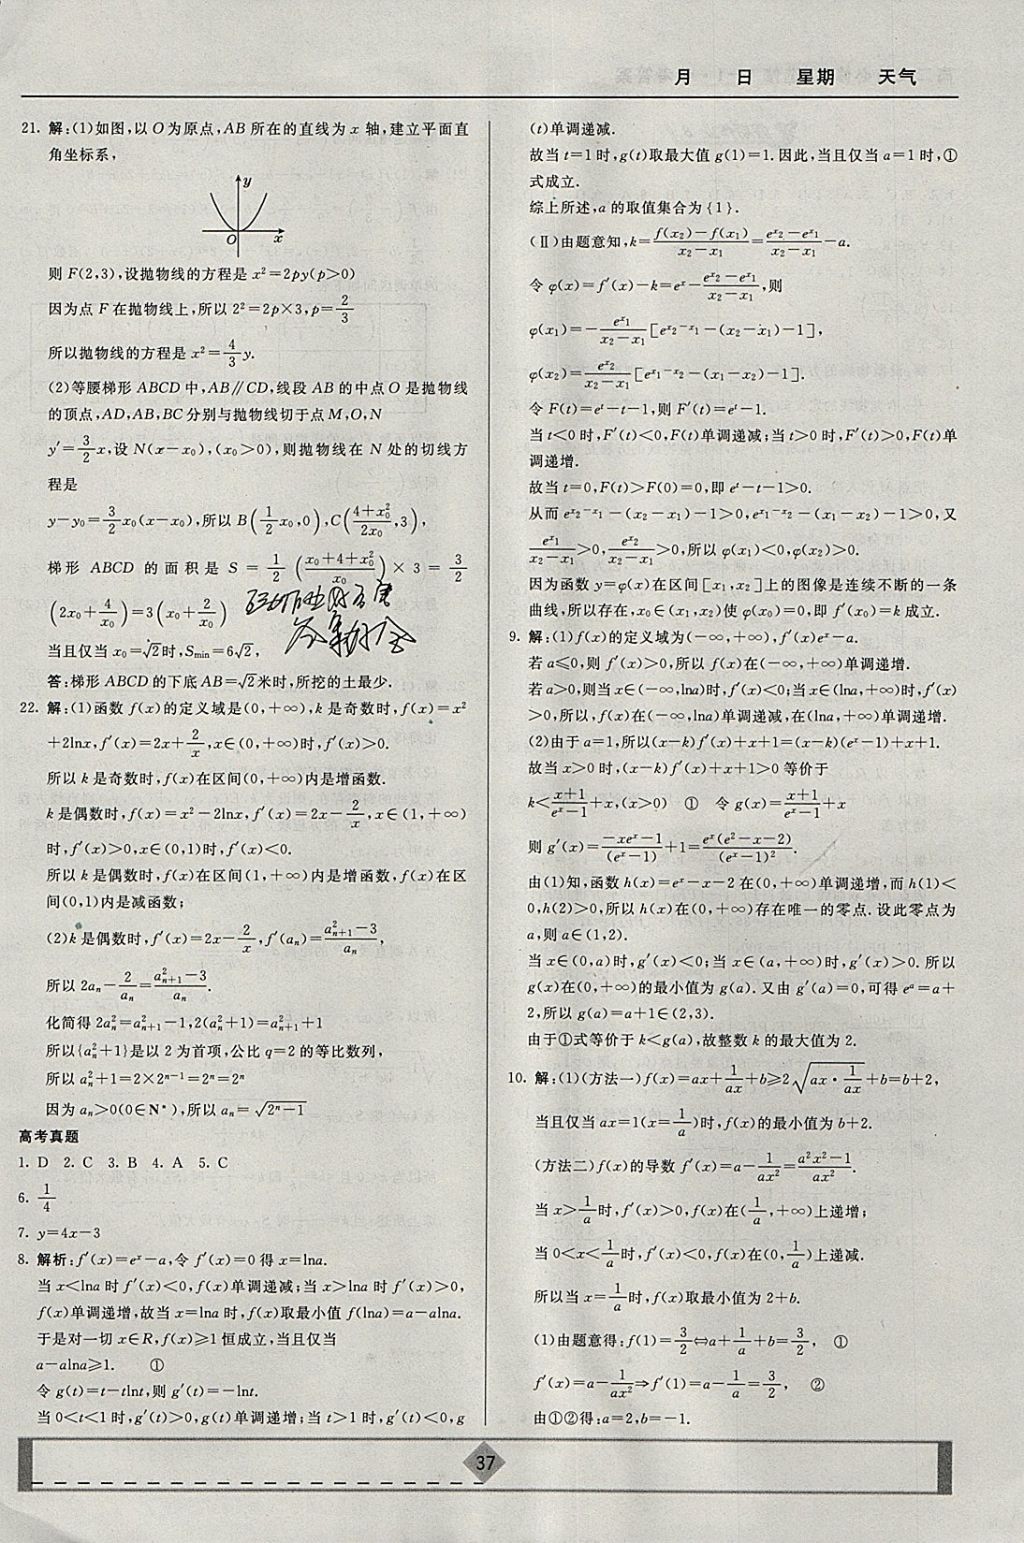 月 日 星期 天气
21. 解:(1)如图,以O为原点,AB所在的直线为x轴,建立平面直
角坐标系,
y
O x
则F(2,3),设抛物线的方程是x²=2py(p>0)
因为点F在抛物线上,所以2²=2p×3,p=2/3
所以抛物线的方程是x²=4/3y.
(2)等腰梯形ABCD中,AB∥CD,线段AB的中点O是抛物线
的顶点,AD,AB,BC分别与抛物线切于点M,O,N
y′=3/2x,设N(x−x₀),(x₀>0),则抛物线在N处的切线方
程是
y−y₀=3/2x₀(x−x₀),所以B(1/2x₀,0),C((4+x₀²)/2x₀,3),
梯形ABCD的面积是S=1/2((x₀+4+x₀²)/x₀)×3=3/2
(2x₀+4/x₀)=3(x₀+2/x₀)
当且仅当x₀=√2时,Smin=6√2,
答:梯形ABCD的下底AB=√2米时,所挖的土最少.
22. 解:(1)函数f(x)的定义域是(0,+∞),k是奇数时,f(x)=x²
+2lnx,f′(x)=2x+2/x,x∈(0,+∞)时,f′(x)>0.
所以k是奇数时,f(x)在区间(0,+∞)内是增函数.
k是偶数时,f(x)=x²−2lnx,f′(x)=2x−2/x,x∈(1,+∞)
时,f′(x)>0,x∈(0,1)时,f′(x)<0.
所以k是偶数时,f(x)在区间(1,+∞)内是增函数,f(x)在区
间(0,1)内是减函数;
(2)k是偶数时,f′(x)=2x−2/x,f′(aₙ)=(a²ₙ₊₁−3)/aₙ,
所以2aₙ−2/aₙ=(a²ₙ₊₁−3)/aₙ.
化简得2aₙ²=a²ₙ₊₁−1,2(aₙ²+1)=a²ₙ₊₁+1
所以{aₙ²+1}是以2为首项,公比q=2的等比数列,
所以aₙ²+1=2×2ⁿ⁻¹=2ⁿ=2ⁿ
因为aₙ>0(0∈N*),所以aₙ=√(2ⁿ−1)
高考真题
1. D 2. C 3. B 4. A 5. C
6. 1/4
7. y=4x−3
8. 解析:f′(x)=eˣ−a,令f′(x)=0得x=lna.
当x<lna时f′(x)<0,f(x)单调递减;当x>lna时f′(x)>0,
f(x)单调递增,故当x=lna时,f(x)取最小值f(lna)=a−alna.
于是对一切x∈R,f(x)≥1恒成立,当且仅当
a−alna≥1. ①
令g(t)=t−tlnt,则g′(t)=−lnt.
当0<t<1时,g′(t)>0,g(t)单调递增;当t>1时,g′(t)<0,g
(t)单调递减.
故当t=1时,g(t)取最大值g(1)=1.因此,当且仅当a=1时,①
式成立.
综上所述,a的取值集合为{1}.
(Ⅱ)由题意知,k=(f(x₂)−f(x₁))/(x₂−x₁)=(e^x₂−e^x₁)/(x₂−x₁)−a.
令φ(x)=f′(x)−k=eˣ−(e^x₂−e^x₁)/(x₂−x₁),则
φ(x₁)=−e^x₁/(x₂−x₁)[e^(x₂−x₁)−(x₂−x₁)−1],
φ(x₂)=e^x₂/(x₂−x₁)[e^(x₁−x₂)−(x₁−x₂)−1].
令F(t)=eᵗ−t−1,则F′(t)=eᵗ−1.
当t<0时,F′(t)<0,F(t)单调递减;当t>0时,F′(t)>0,F(t)单
调递增.
故当t=0,F(t)>F(0)=0,即eᵗ−t−1>0.
从而e^(x₂−x₁)−(x₂−x₁)−1>0,e^(x₁−x₂)−(x₁−x₂)−1>0,又
e^x₁/(x₂−x₁)>0,e^x₂/(x₂−x₁)>0,所以φ(x₁)<0,φ(x₂)>0.
因为函数y=φ(x)在区间[x₁,x₂]上的图像是连续不断的一条
曲线,所以存在,x₀∈(x₁,x₂)使φ(x₀)=0,即f′(x₀)=k成立.
9. 解:(1)f(x)的定义域为(−∞,+∞),f′(x)eˣ−a.
若a≤0,则f′(x)>0,所以f(x)在(−∞,+∞)单调递增.
若a>0,则当x∈(−∞,lna)时,f′(x)<0;当x∈(lna)时,f′(x)
>0,所以,f(x)在(−∞,lna)单调递减,在(lna)单调递增.
(2)由于a=1,所以(x−k)f′(x)+x+1=(x−k)(eˣ−1)+x+1.
故当x>0时,(x−k)f′(x)+x+1>0等价于
k<(x+1)/(eˣ−1)+x,(x>0) ① 令g(x)=(x+1)/(eˣ−1)+x
则g′(x)=(−xeˣ−1)/(eˣ−1)+1=eˣ(e²−x−2)/(eˣ−1)².
由(1)知,函数h(x)=eˣ−x−2在(0,+∞)单调递增,而h(1)<
0,h(2)>0,所以h(x)在(0,+∞)存在唯一的零点.设此零点为
a,则a∈(1,2).
当x∈(0,a)时,g′(x)<0;当x∈(a,+∞)时,g′(x)>0.所以
g(x)在(0,+∞)的最小值为g(a).又由g′(a)=0,可得eᵃ=a+
2,所以g(a)=a+1∈(2,3).
由于①式等价于k<g(a),故整数k的最大值为2.
10. 解:(1)(方法一)f(x)=ax+1/ax+b≥2√(ax·1/ax)+b=b+2,
当且仅当ax=1(x=1/a)时,f(x)的最小值为b+2.
(方法二)f(x)的导数f′(x)=a−1/ax²=(a²x²−1)/ax².
当x>1/a时,f′(x)>0,f(x)在(1/a,+∞)上递增;
当0<x<1/a时,f′(x)<0,f(x)在(0,1/a)上递减.
所以当x=1/a时,f(x)取最小值为2+b.
(1)由题意得:f(1)=3/2⇔a+1/a+b=3/2, ①
f′(x)=a−1/ax²⇒f′(1)=a−1/a=3/2, ②
由①②得:a=2,b=−1.
37